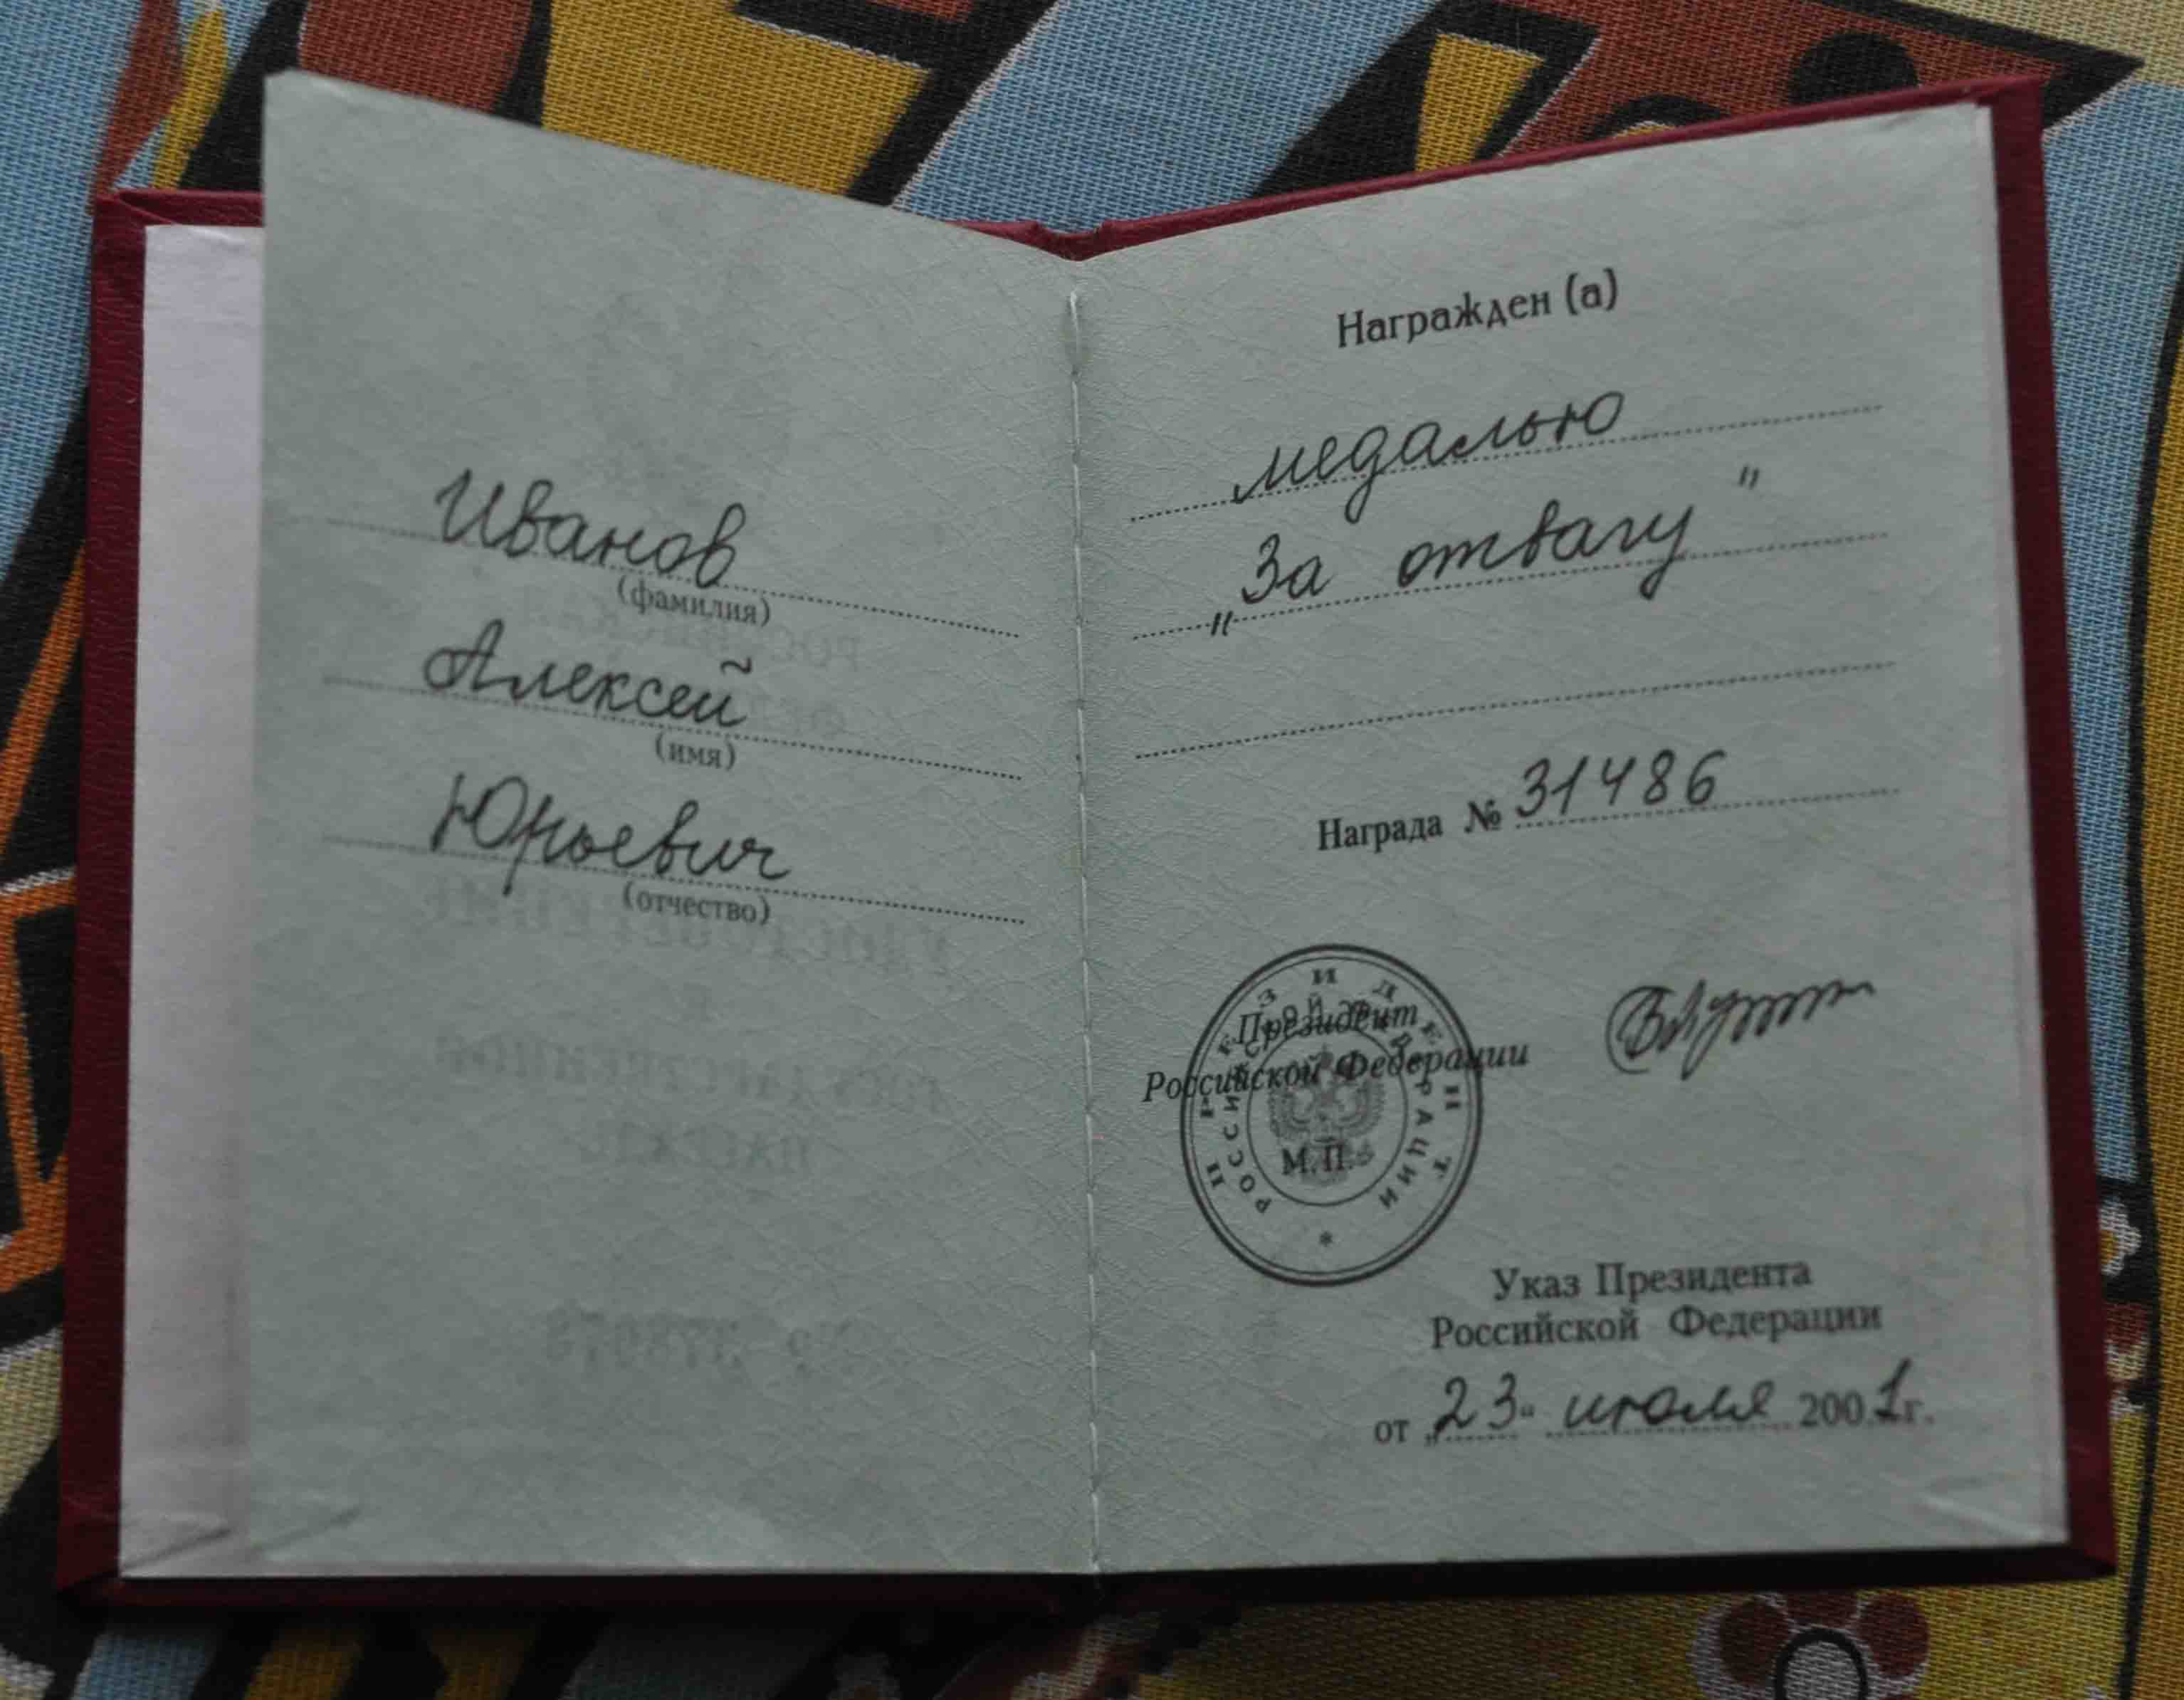 Иванов
(фамилия)
Алексей
(имя)
Юрьевич
(отчество)
Награжден (а)
медалью
„За отвагу"
Награда № 31486
Президент
Российской Федерации
М.П.
ПРЕЗИДЕНТ
РОССИЙСКОЙ ФЕДЕРАЦИИ
*
Указ Президента
Российской Федерации
от „23“ июля 2001г.